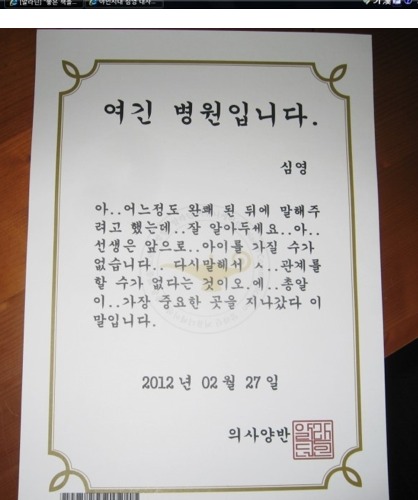 여긴 병원입니다.
심영
아..어느정도 완쾌 된 뒤에 말해주
려고 했는데..잘 알아두세요..아..
선생은 앞으로..아이를 가질 수가
없습니다.. 다시말해서 ㅅ..관계를
할 수가 없다는 것이오.에..총알
이..가장 중요한 곳을 지나갔다 이
말입니다.
2012 년 02 월 27 일
의사양반